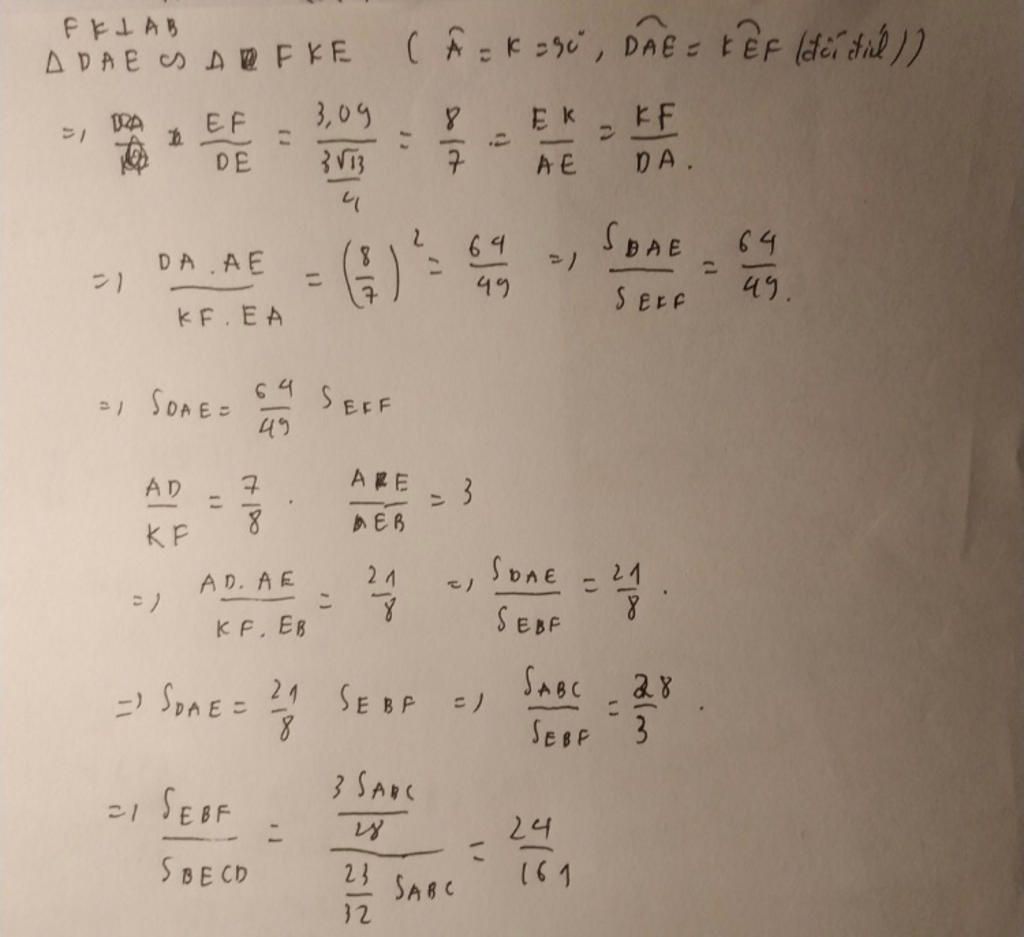 FK⊥AB
Δ DAE ∽ Δ FKE ( Â = K = 90°, DAE = KEF (đối đỉnh))
=> EF/DE = 3,09/(3√13/4) = 8/7 = EK/AE = KF/DA.
=> DA.AE/KF.EA = (8/7)² = 64/49 => SDAE/SEKF = 64/49.
=> SDAE = 64/49 SEKF
AD/KF = 7/8 . AE/EB = 3
=> AD.AE/KF.EB = 21/8 => SDAE/SEBF = 21/8 .
=> SDAE = 21/8 SEBF => SABC/SEBF = 28/3 .
=> SEBF/SBECD = (3 SABC/28)/(23/32 SABC) = 24/161